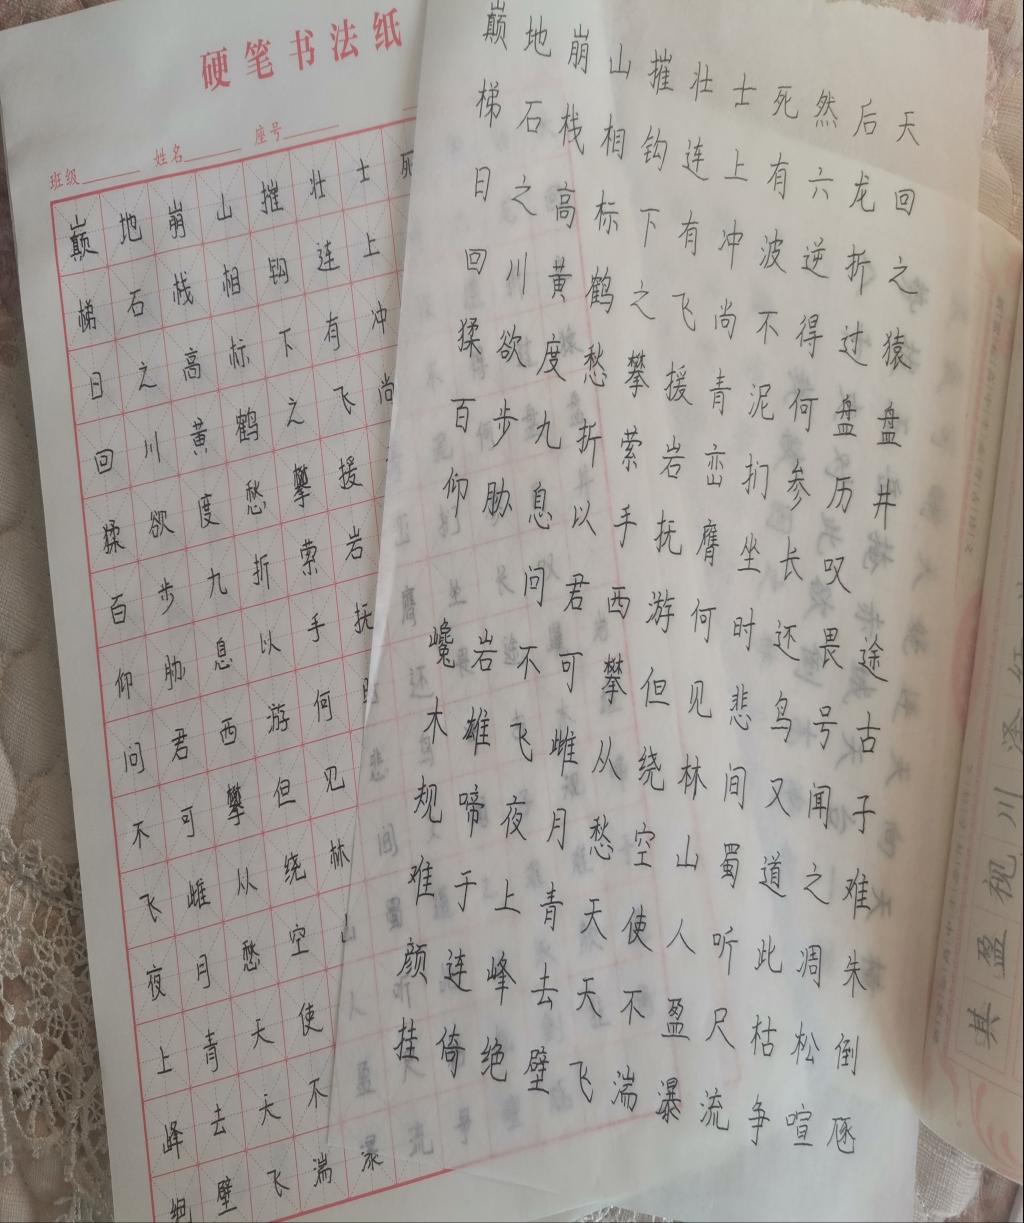 硬笔书法纸
班级 姓名 座号
巅地崩山摧壮士死
梯石栈相钩连上
日之高标下有冲
回川黄鹤之飞尚
猱欲度愁攀援
百步九折萦岩
仰胁息以手抚
问君西游何
不可攀但见
飞雌从绕林
夜月愁空山
上青天使
峰去天不
绝壁飞湍瀑
巅地崩山摧壮士死然后天
梯石栈相钩连上有六龙回
日之高标下有冲波逆折之
回川黄鹤之飞尚不得过猿
猱欲度愁攀援青泥何盘盘
百步九折萦岩峦扪参历井
仰胁息以手抚膺坐长叹
问君西游何时还畏途
巉岩不可攀但见悲鸟号古
木雄飞雌从绕林间又闻子
规啼夜月愁空山蜀道之难
难于上青天使人听此凋朱
颜连峰去天不盈尺枯松倒
挂倚绝壁飞湍瀑流争喧豗
其盈视川泽红